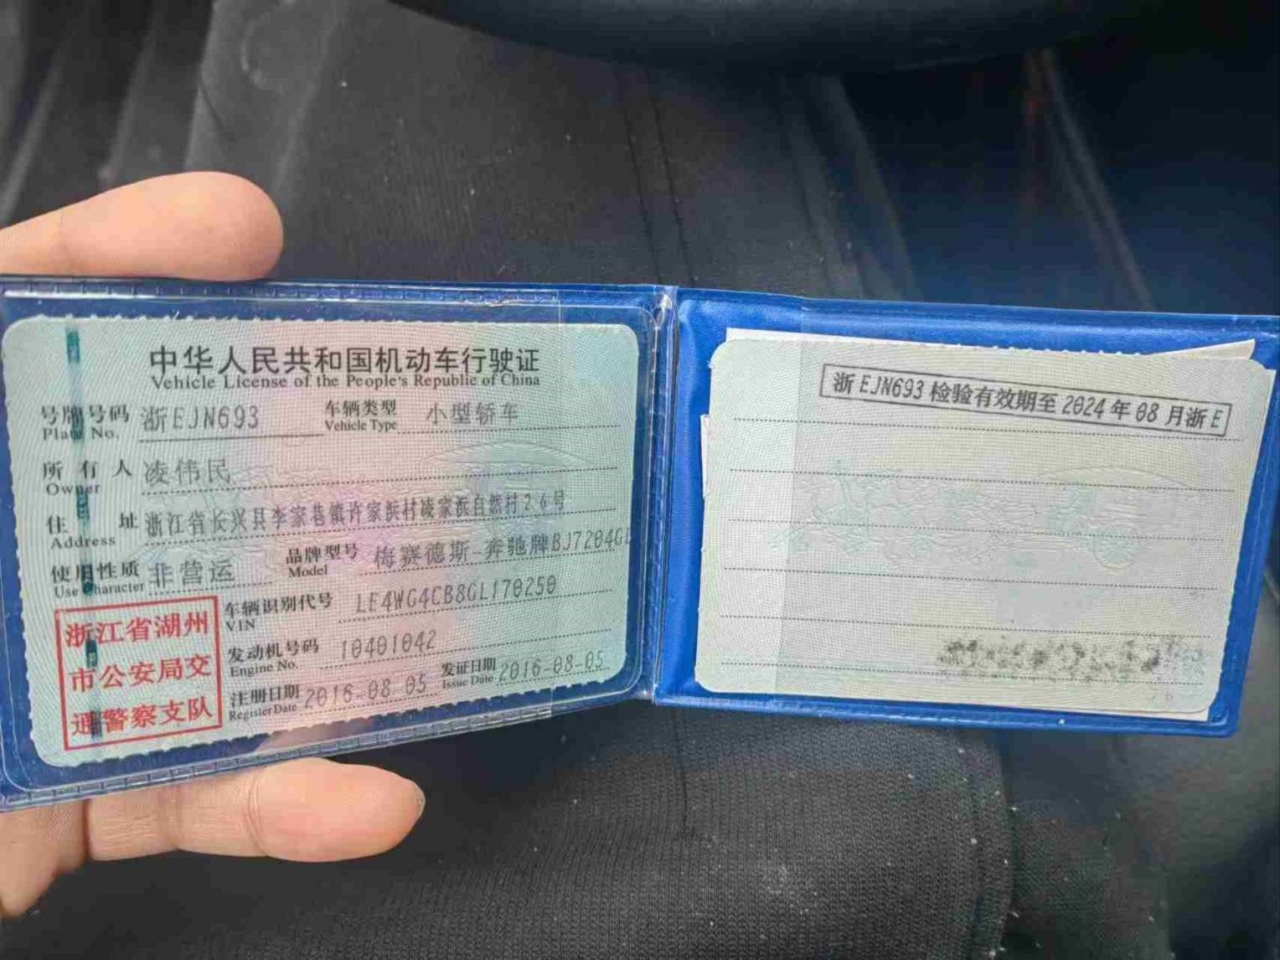 中华人民共和国机动车行驶证
Vehicle License of the People's Republic of China
号牌号码 浙EJN693 车辆类型 小型轿车
Plate No. Vehicle Type
所有人 凌伟民
Owner
住址 浙江省长兴县李家巷镇许家浜村凌家浜自然村26号
Address
使用性质 非营运 品牌型号 梅赛德斯-奔驰牌BJ7204G
Use Character Model
车辆识别代号 LE4WG4CB8GL170250
VIN
发动机号码 10401042
Engine No.
注册日期 2016-08-05 发证日期 2016-08-05
Register Date Issue Date
浙江省湖州
市公安局交
通警察支队
浙EJN693 检验有效期至 2024年08月浙E